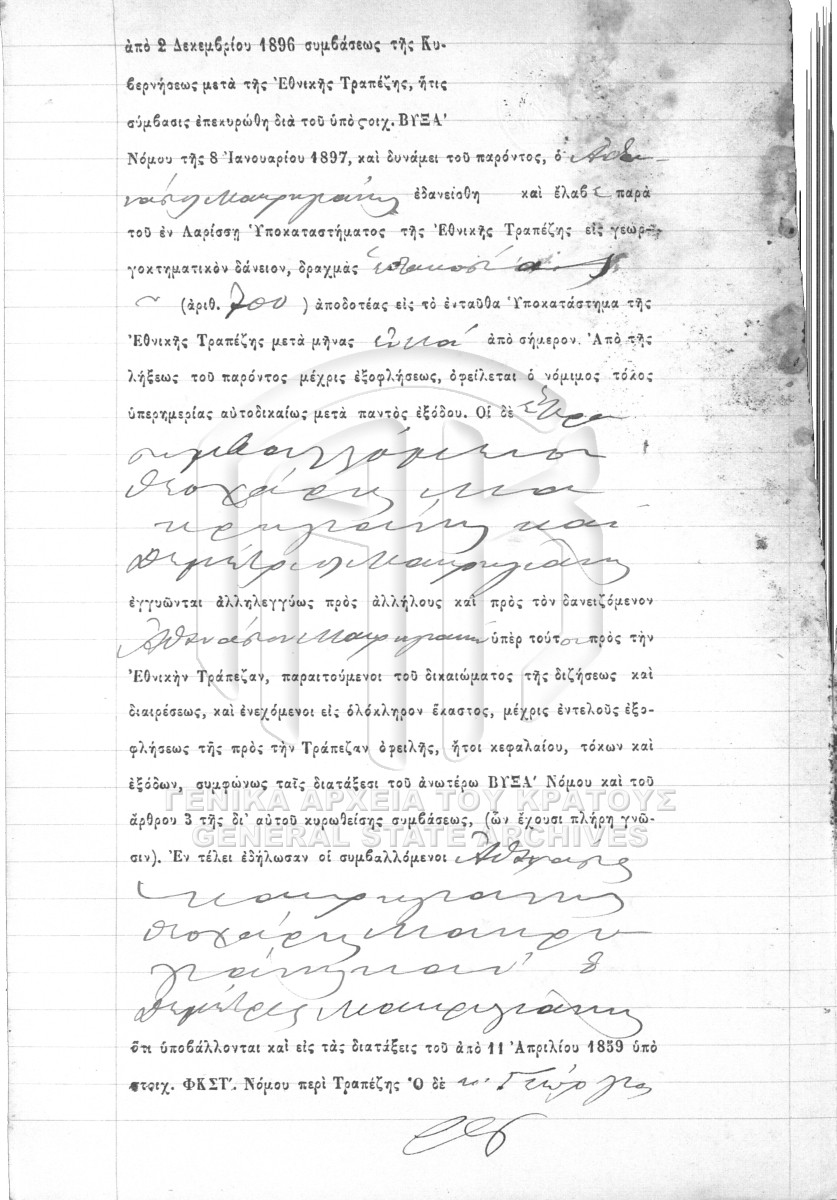 ἀπὸ 2 Δεκεμβρίου 1896 συμβάσεως τῆς Κυ-
βερνήσεως μετὰ τῆς Ἐθνικῆς Τραπέζης, ἥτις
σύμβασις ἐπεκυρώθη διὰ τοῦ ὑπὸ ςοιχ. ΒΥΞΑʹ
Νόμου τῆς 8 Ἰανουαρίου 1897, καὶ δυνάμει τοῦ παρόντος, ὁ Ἀθα-
νάσιος Μακρυγιάννης ἐδανείσθη καὶ ἔλαβε παρὰ
τοῦ ἐν Λαρίσσῃ Ὑποκαταστήματος τῆς Ἐθνικῆς Τραπέζης εἰς γεωρ-
γοκτηματικὸν δάνειον, δραχμὰς ἑπτακοσίας
(ἀριθ. 700) ἀποδοτέας εἰς τὸ ἐνταῦθα Ὑποκατάστημα τῆς
Ἐθνικῆς Τραπέζης μετὰ μῆνας ἐννέα ἀπὸ σήμερον. Ἀπὸ τῆς
λήξεως τοῦ παρόντος μέχρις ἐξοφλήσεως, ὀφείλεται ὁ νόμιμος τόκος
ὑπερημερίας αὐτοδικαίως μετὰ παντὸς ἐξόδου. Οἱ δὲ ἕτεροι
συμβαλλόμενοι
Θεοχάρης Μα
κρυγιάννης καὶ
Δημήτριος Μακρυγιάννης
ἐγγυῶνται ἀλληλεγγύως πρὸς ἀλλήλους καὶ πρὸς τὸν δανειζόμενον
Ἀθανάσιον Μακρυγιάννην ὑπὲρ τούτου πρὸς τὴν
Ἐθνικὴν Τράπεζαν, παραιτούμενοι τοῦ δικαιώματος τῆς διζήσεως καὶ
διαιρέσεως, καὶ ἐνεχόμενοι εἰς ὁλόκληρον ἕκαστος, μέχρις ἐντελοῦς ἐξο-
φλήσεως τῆς πρὸς τὴν Τράπεζαν ὀφειλῆς, ἤτοι κεφαλαίου, τόκων καὶ
ἐξόδων, συμφώνως ταῖς διατάξεσι τοῦ ἀνωτέρω ΒΥΞΑʹ Νόμου καὶ τοῦ
ΓΕΝΙΚΑ ΑΡΧΕΙΑ ΤΟΥ ΚΡΑΤΟΥΣ
ἄρθρου 3 τῆς δι' αὐτοῦ κυρωθείσης συμβάσεως, (ὧν ἔχουσι πλήρη γνῶ-
GENERAL STATE ARCHIVES
σιν). Ἐν τέλει ἐδήλωσαν οἱ συμβαλλόμενοι Ἀθανάσιος
Μακρυγιάννης
Θεοχάρης Μακρυ
γιάννης καὶ
Δημήτριος Μακρυγιάννης
ὅτι ὑποβάλλονται καὶ εἰς τὰς διατάξεις τοῦ ἀπὸ 11 Ἀπριλίου 1859 ὑπὸ
στοιχ. ΦΚΣΤʹ. Νόμου περὶ Τραπέζης Ὁ δὲ κ. Γεώργιος